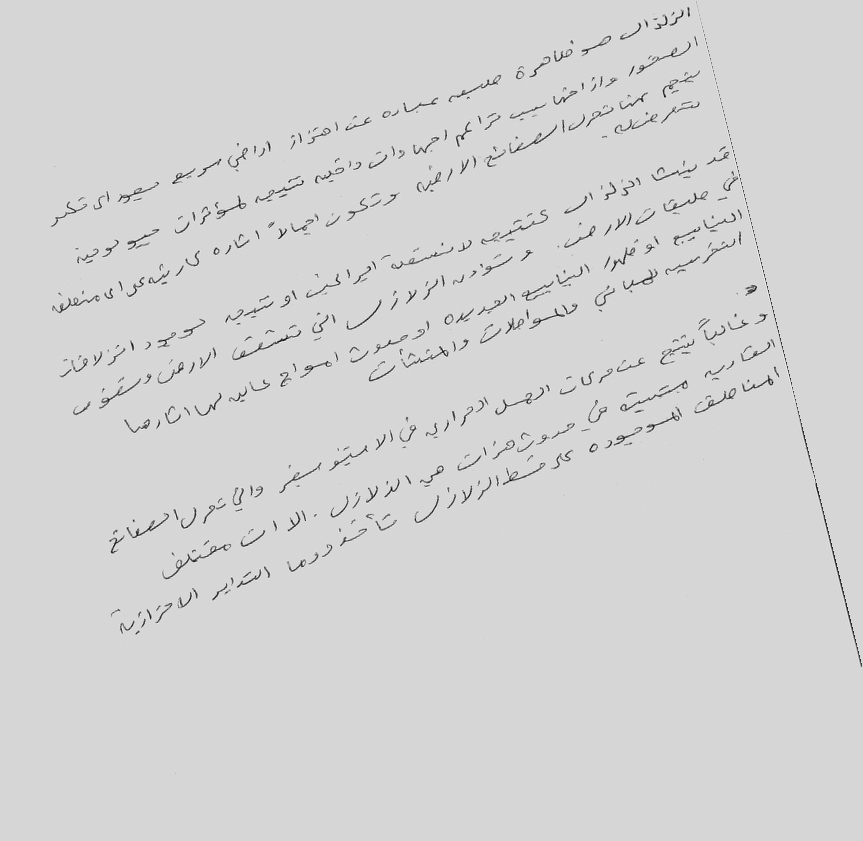 الزلزال هو ظاهرة طبيعه عباره عن اهتزاز اراضي سريع يعود الى تكسر
الصخور وازاحتها بسبب تراكم اجهادات داخليه نتيجه لمؤثرات جيولوجية
ينجم عنها تحرك الصفائح الارضيه وتكون اجمالاً اثاره كارثيه على اى منطقه
تتعرض له.
قد ينشا الزلزال كنتيجه لانشطة البراكين او نتيجه لوجود انزلاقات
في طبقات الارض. وتؤدى الزلازل الى تشقق الارض ونضوب
الينابيع او ظهور الينابيع الجديده او حدوث امواج عاليه لها اثارها
التخريبيه للمباني والمواصلات والمنشأت
وغالباً ينتج عن حركات الحمل الحراري في الاستينوسفير والتي تحرك الصفائح
القاريه متسببة في حدوث هزات هي الزلازل. الا ان مختلف
المناطق الموجوده على خط الزلازل تأخذ دوما التدابير الاحترازية